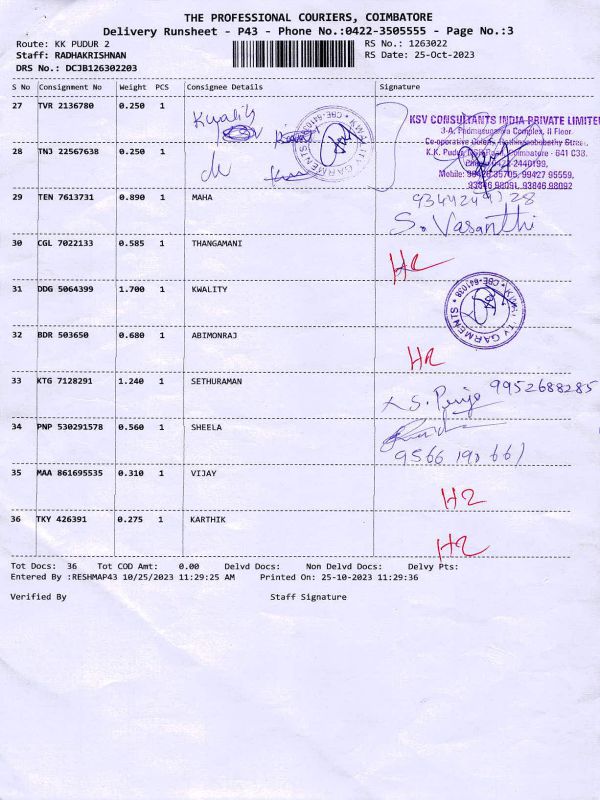 THE PROFESSIONAL COURIERS, COIMBATORE
Delivery Runsheet - P43 - Phone No.:0422-3505555 - Page No.:3
Route: KK PUDUR 2 RS No.: 1263022
Staff: RADHAKRISHNAN RS Date: 25-Oct-2023
DRS No.: DCJB126302203
S No Consignment No Weight PCS Consignee Details Signature
27 TVR 2136780 0.250 1 Kwality
KWALITY GARMENTS CBE-641038
KSV CONSULTANTS INDIA PRIVATE LIMITED
3-A, Padmasurya Complex, II Floor,
Co-operative Street,
28 TNJ 22567638 0.250 1
K.K. Pudur, Coimbatore - 641 038.
2440199,
Mobile: 98426 35705, 99427 95559,
93846 98091, 93846 98092
29 TEN 7613731 0.890 1 MAHA
S. Vasanthi
30 CGL 7022133 0.585 1 THANGAMANI
31 DDG 5064399 1.700 1 KWALITY
KWALITY GARMENTS CBE-641038
32 BDR 503650 0.680 1 ABIMONRAJ
33 KTG 7128291 1.240 1 SETHURAMAN 9952688285
34 PNP 530291578 0.560 1 SHEELA
9566 190 661
35 MAA 861695535 0.310 1 VIJAY
H2
36 TKY 426391 0.275 1 KARTHIK
H2
Tot Docs: 36 Tot COD Amt: 0.00 Delvd Docs: Non Delvd Docs: Delvy Pts:
Entered By :RESHMAP43 10/25/2023 11:29:25 AM Printed On: 25-10-2023 11:29:36
Verified By Staff Signature